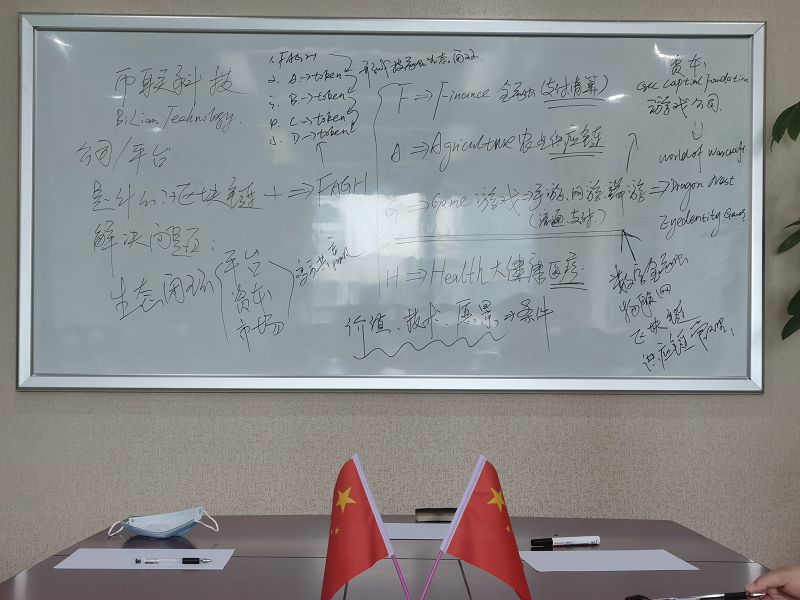 币联科技
BiLian Technology.
公司/平台
区块链 + ⇒ FAGH
解决问题:
生态闭环 { 平台
资本
市场
1. FAGH
2. A→token
3. B→token
4. C→token
5. D→token
F ⇒ Finance 金融 (支付清算)
A ⇒ Agriculture 农业供应链
G ⇒ Game 游戏 → 手游、网游、端游 ⇒ Dragon Nest
(流通、支付)
H ⇒ Health 大健康医疗:
价值、技术、愿景 ⇒ 条件
资本:
Capital Foundation
游戏公司
world of warcraft
Eyedentity Games
数字金融
物联网
区块链
供应链管理